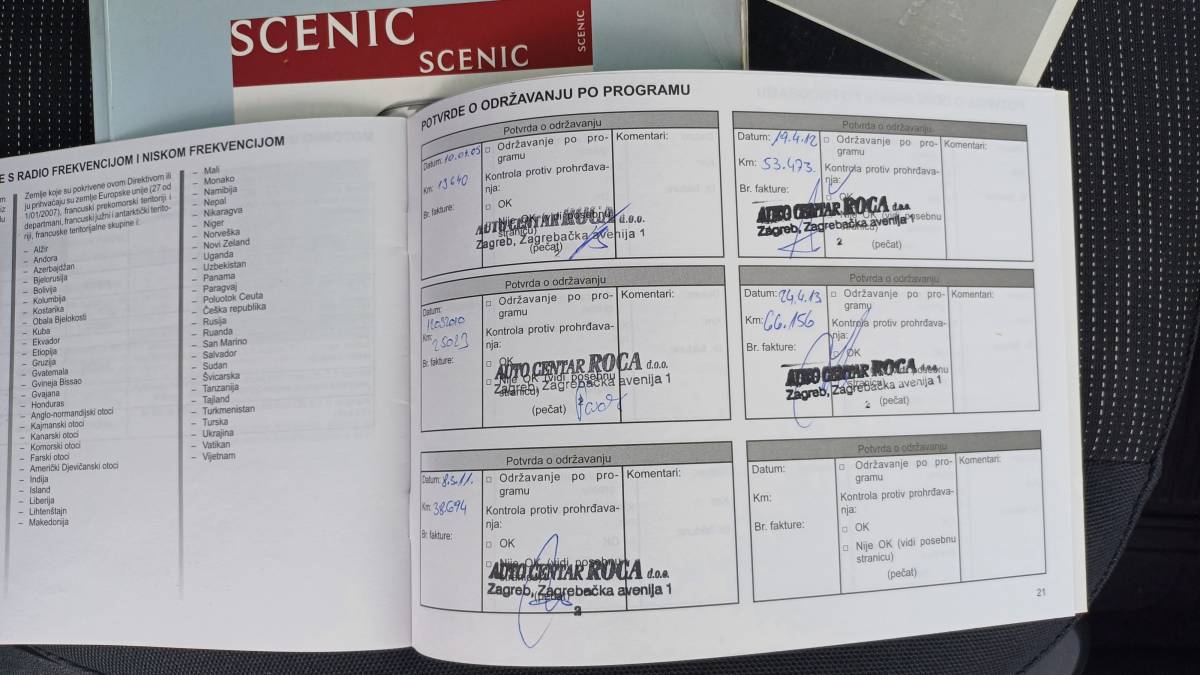 SCENIC
SCENIC
SCENIC
E S RADIO FREKVENCIJOM I NISKOM FREKVENCIJOM
Zemlje koje su pokrivene ovom Direktivom ili
ju prihvaćaju su zemlje Europske unije (27 od
1/01/2007), francuski prekomorski teritoriji i
departmani, francuski južni i antarktički terito-
riji, francuske teritorijalne skupine i:
– Alžir
– Andora
– Azerbajdžan
– Bjelorusija
– Bolivija
– Kolumbija
– Kostarika
– Obala Bjelokosti
– Kuba
– Ekvador
– Etiopija
– Gruzija
– Gvatemala
– Gvineja Bissao
– Gvajana
– Honduras
– Anglo-normandijski otoci
– Kajmanski otoci
– Kanarski otoci
– Komorski otoci
– Farski otoci
– Američki Djevičanski otoci
– Indija
– Island
– Liberija
– Lihtenštajn
– Makedonija
– Mali
– Monako
– Namibija
– Nepal
– Nikaragva
– Niger
– Norveška
– Novi Zeland
– Uganda
– Uzbekistan
– Panama
– Paragvaj
– Poluotok Ceuta
– Češka republika
– Rusija
– Ruanda
– San Marino
– Salvador
– Sudan
– Švicarska
– Tanzanija
– Tajland
– Turkmenistan
– Turska
– Ukrajina
– Vatikan
– Vijetnam
POTVRDE O ODRŽAVANJU PO PROGRAMU
Potvrda o održavanju
Datum: 10.07.09
Km: 13640
Br. fakture:
Održavanje po pro-
gramu
Kontrola protiv prohrđava-
nja:
OK
Nije OK (vidi posebnu
stranicu)
(pečat)
Komentari:
AUTO CENTAR ROCA d.o.o.
Zagreb, Zagrebačka avenija 1
2
Potvrda o održavanju
Datum:
12032010
Km:
25023
Br. fakture:
Održavanje po pro-
gramu
Kontrola protiv prohrđava-
nja:
OK
Nije OK (vidi posebnu
stranicu)
(pečat)
Komentari:
AUTO CENTAR ROCA d.o.o.
Zagreb, Zagrebačka avenija 1
2
Potvrda o održavanju
Datum: 8.3.11.
Km: 38.694
Br. fakture:
Održavanje po pro-
gramu
Kontrola protiv prohrđava-
nja:
OK
Nije OK (vidi posebnu
stranicu)
(pečat)
Komentari:
AUTO CENTAR ROCA d.o.o.
Zagreb, Zagrebačka avenija 1
2
Potvrda o održavanju
Datum: 19.4.12
Km: 53.473.
Br. fakture:
Održavanje po pro-
gramu
Kontrola protiv prohrđava-
nja:
OK
Nije OK (vidi posebnu
stranicu)
(pečat)
Komentari:
AUTO CENTAR ROCA d.o.o.
Zagreb, Zagrebačka avenija 1
2
Potvrda o održavanju
Datum: 24.4.13
Km: 66.156
Br. fakture:
Održavanje po pro-
gramu
Kontrola protiv prohrđava-
nja:
OK
Nije OK (vidi posebnu
stranicu)
(pečat)
Komentari:
AUTO CENTAR ROCA d.o.o.
Zagreb, Zagrebačka avenija 1
2
Potvrda o održavanju
Datum:
Km:
Br. fakture:
Održavanje po pro-
gramu
Kontrola protiv prohrđava-
nja:
OK
Nije OK (vidi posebnu
stranicu)
(pečat)
Komentari:
21